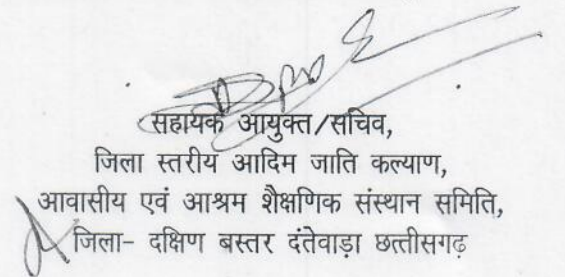 सहायक आयुक्त/सचिव,
जिला स्तरीय आदिम जाति कल्याण,
आवासीय एवं आश्रम शैक्षणिक संस्थान समिति,
जिला- दक्षिण बस्तर दंतेवाड़ा छत्तीसगढ़